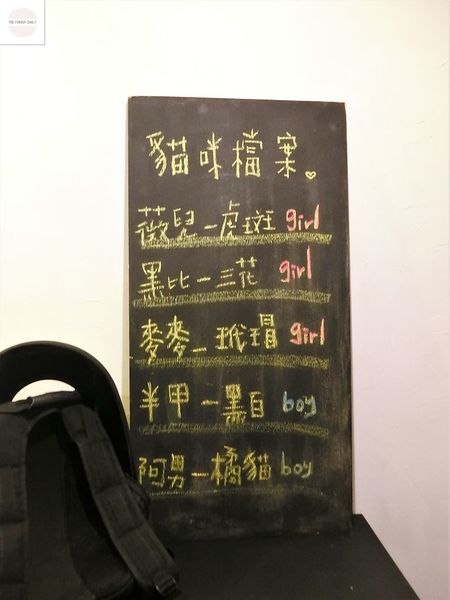 THE FUNNY DAILY
貓咪檔案。
薇兒－虎斑 girl
黑比－三花 girl
麥麥－玳瑁 girl
半甲－黑白 boy
阿男－橘貓 boy